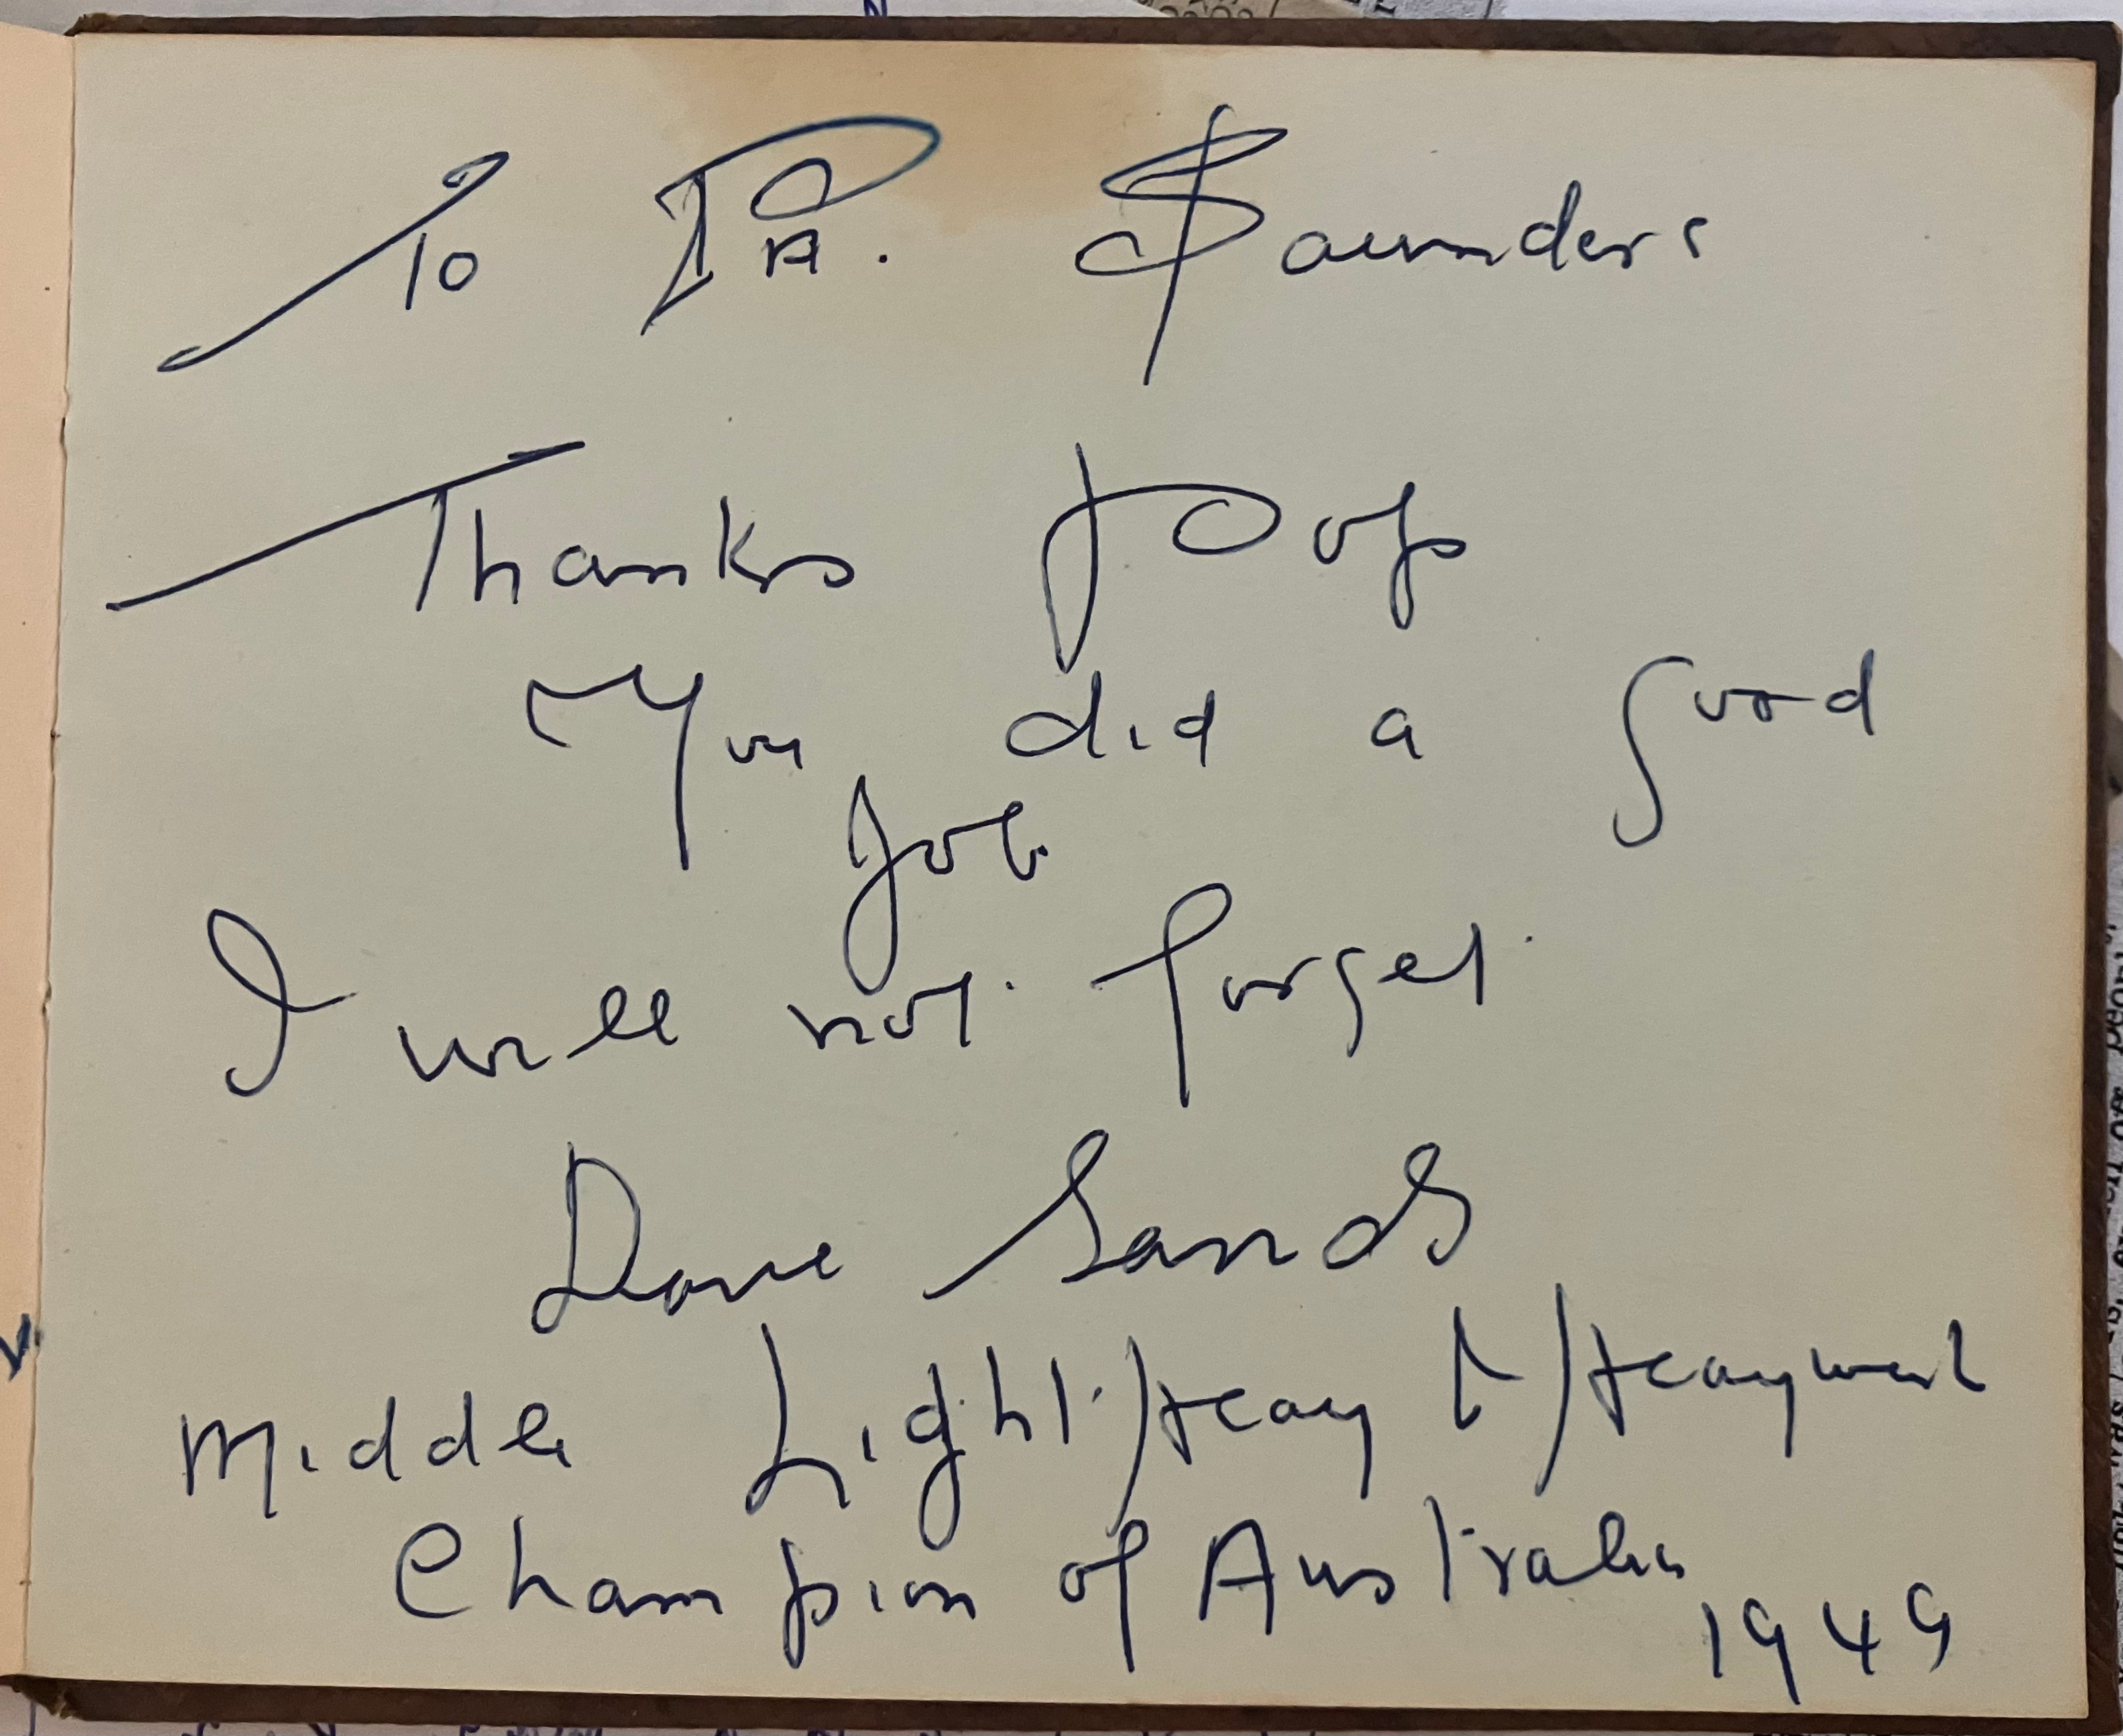 To PA. Saunders
Thanks Pops
You did a good
Job.
I will not forget
Dave Sands
Middle Light/Heavy & Heavyweight
Champion of Australia
1949